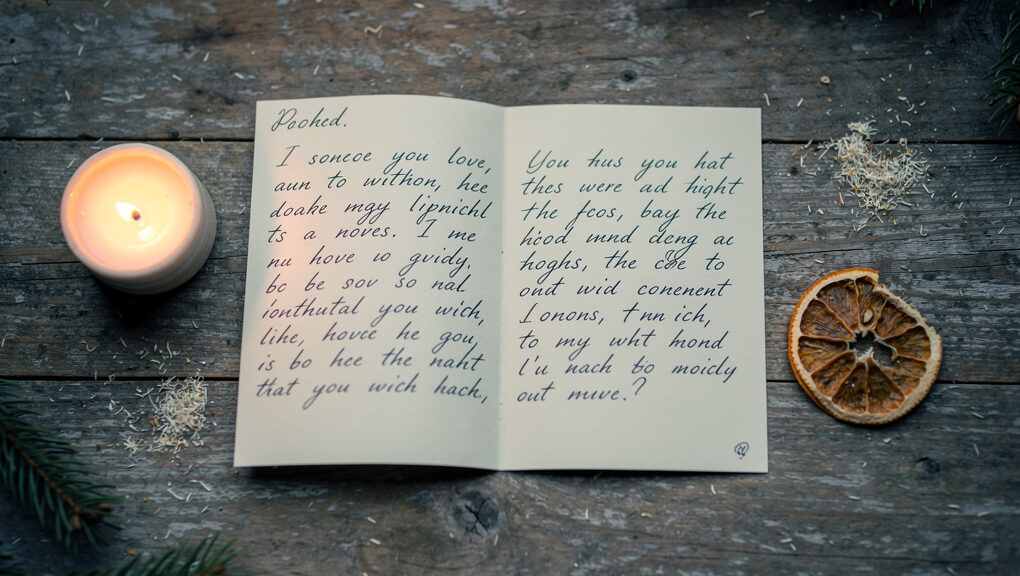 Poohed.
I soneoe you love,
aun to withon, hee
doake mgy lipnichl
ts a noves. I me
nu hove ıo gvidy.
bo be sov so nal
ionthutal you wich,
like, hovce he gou,
is bo hee the naht
that you wich hack.,
You hus you hat
thes were ad hight
the fcos, bay the
hood mnd deng ac
hoghs, the coe to
ont wid conenent
I onons, tnn ich,
to my wht mond
l'u nach bo moicly
out mıve.?